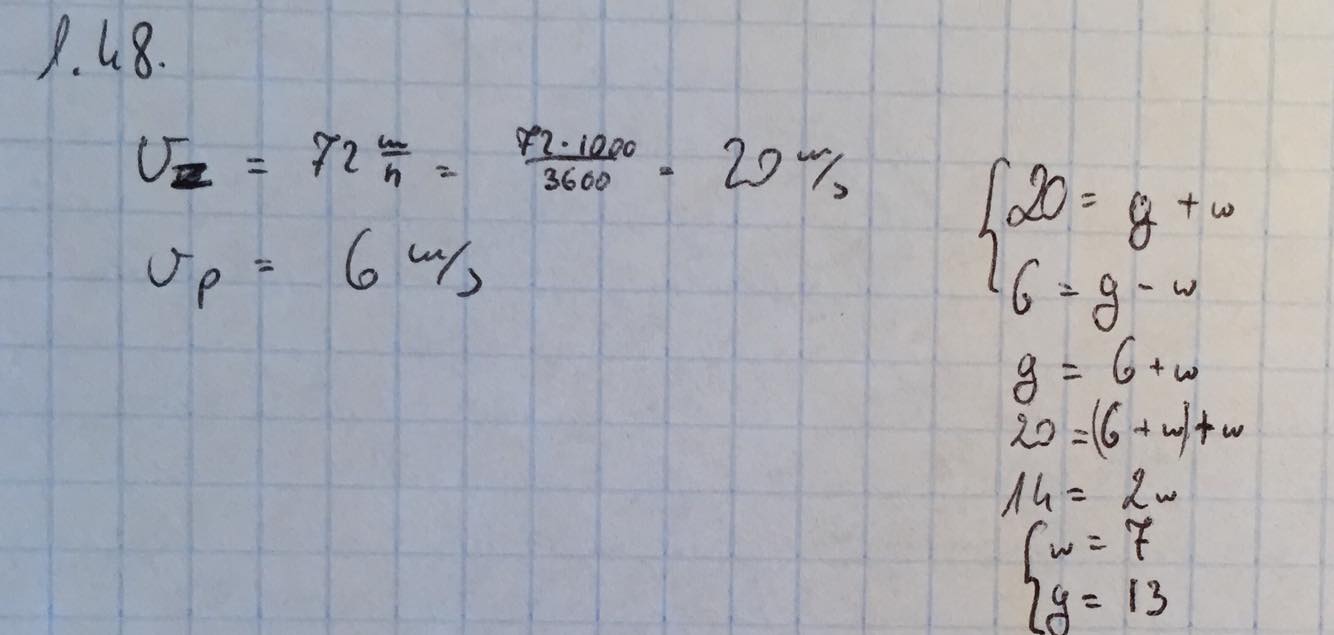 1.48.
v_z = 72 m/h = 72·1000/3600 = 20 m/s
v_p = 6 m/s
{ 20 = g + w
6 = g - w
g = 6 + w
20 = (6 + w) + w
14 = 2w
{ w = 7
g = 13